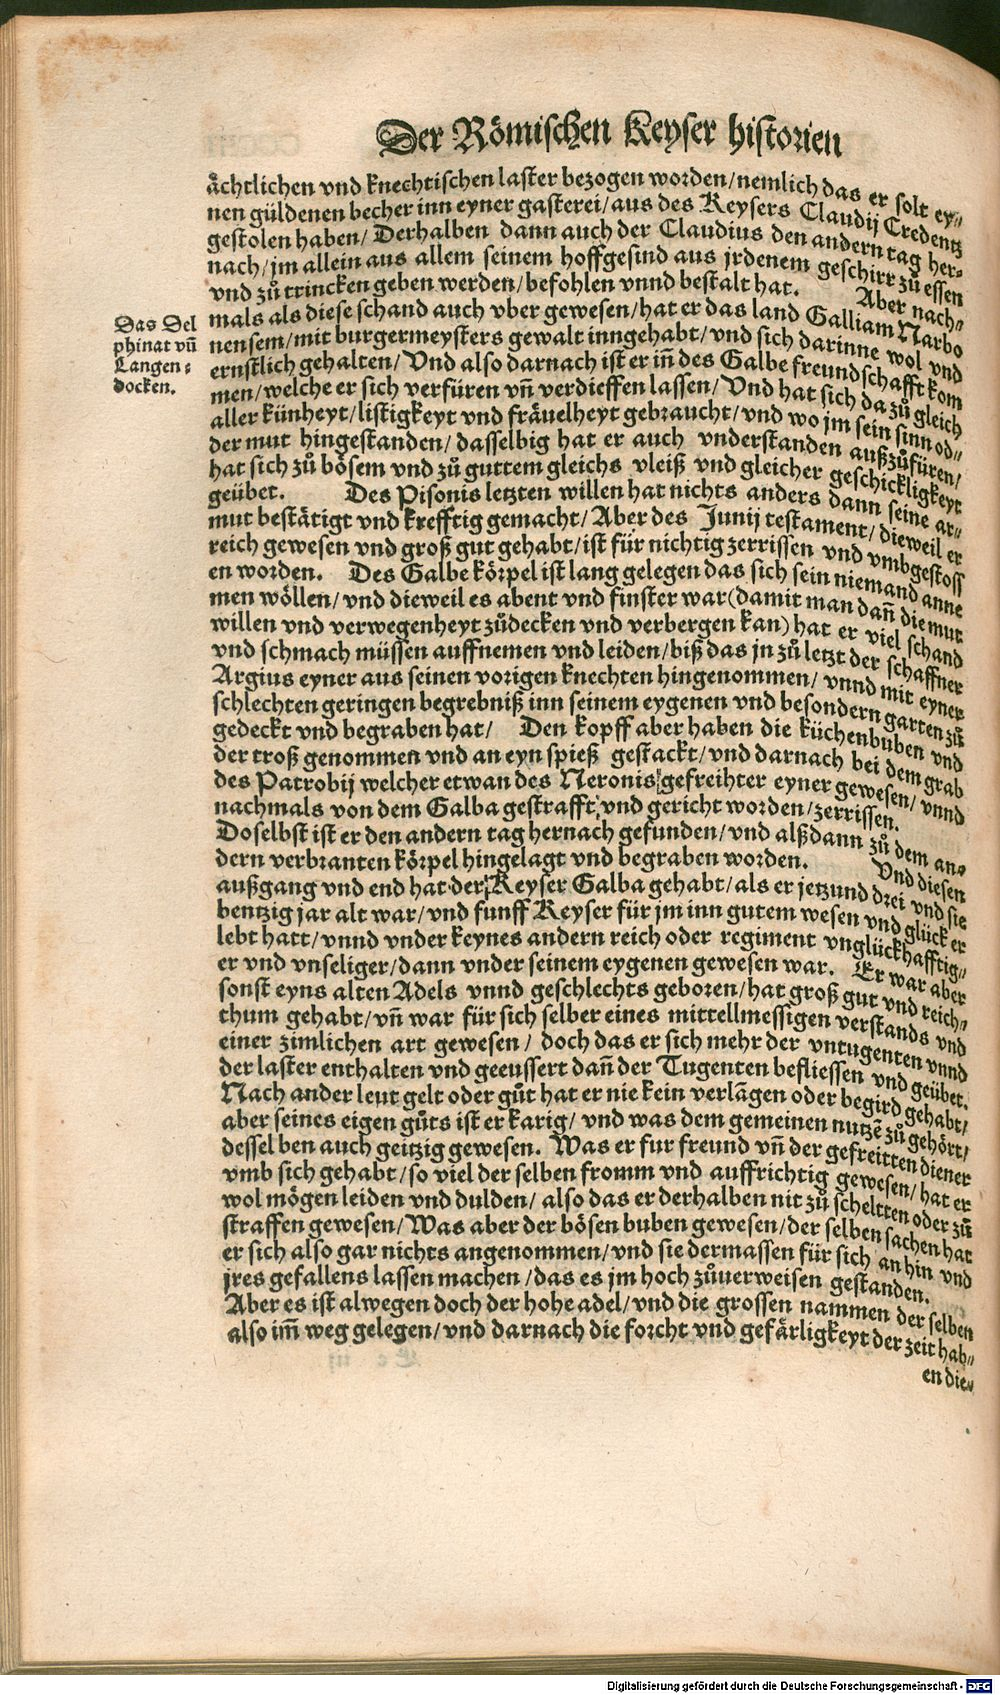 Der Römischen Keyser historien
ächtlichen vnd knechtischen laster bezogen worden/nemlich das er solt ey⸗
nen güldenen becher inn eyner gasterei/aus des Keysers Claudij Credentz
gestolen haben/ Derhalben dann auch der Claudius den andern tag her⸗
nach/jm allein aus allem seinem hoffgesind aus jrdenem geschirr zů essen
vnd zů trincken geben werden/befohlen vnnd bestalt hat. Aber nach⸗
mals als diese schand auch vber gewesen/hat er das land Galliam Narbo
nensem/mit burgermeysters gewalt inngehabt/vnd sich darinne wol vnd
ernstlich gehalten/ Vnd also darnach ist er iñ des Galbe freundschafft kom
men/welche er sich verfüren vñ verdieffen lassen/ Vnd hat sich da zů gleich
aller künheyt/listigkeyt vnd fräuelheyt gebraucht/vnd wo jm sein sinn od⸗
der mut hingestanden/ dasselbig hat er auch vnderstanden außzůfüren/
hat sich zů bösem vnd zů guttem gleichs vleiß vnd gleicher geschickligkeyt
geübet. Des Pisonis letzten willen hat nichts anders dann seine ar⸗
mut bestätigt vnd krefftig gemacht/ Aber des Junij testament/ dieweil er
reich gewesen vnd groß gut gehabt/ist für nichtig zerrissen vnd vmbgestoss
en worden. Des Galbe körpel ist lang gelegen das sich sein niemand anne
men wöllen/ vnd dieweil es abent vnd finster war(damit man dañ die mut
willen vnd verwegenheyt zůdecken vnd verbergen kan) hat er viel schand
vnd schmach müssen auffnemen vnd leiden/biß das jn zů letzt der schaffner
Argius eyner aus seinen vorigen knechten hingenommen/ vnnd mit eyner
schlechten geringen begrebniß inn seinem eygenen vnd besondern garten zů
gedeckt vnd begraben hat/ Den kopff aber haben die küchenbuben vnd
der troß genommen vnd an eyn spieß gestackt/vnd darnach bei dem grab
des Patrobij welcher etwan des Neronis gefreihter eyner gewesen/ vnnd
nachmals von dem Galba gestrafft vnd gericht worden/zerrissen.
Doselbst ist er den andern tag hernach gefunden/vnd alßdann zů dem an⸗
dern verbranten körpel hingelagt vnd begraben worden. Vnd diesen
außgang vnd end hat der Keyser Galba gehabt/als er jetzund drei vnd sie
bentzig jar alt war/vnd funff Keyser für jm inn gutem wesen vnd glück er
lebt hatt/vnnd vnder keynes andern reich oder regiment vnglückhafftig⸗
er vnd vnseliger/dann vnder seinem eygenen gewesen war. Er war aber
sonst eyns alten Adels vnnd geschlechts geboren/hat groß gut vnd reich⸗
thum gehabt/vñ war für sich selber eines mittellmessigen verstands vnd
einer zimlichen art gewesen/ doch das er sich mehr der vntugenten vnnd
der laster enthalten vnd geeussert dañ der Tugenten befliessen vnd geübet.
Nach ander leut gelt oder gůt hat er nie kein verlãgen oder begird gehabt/
aber seines eigen gůts ist er karig/ vnd was dem gemeinen nutzẽ zů gehört/
dessel ben auch geitzig gewesen. Was er fur freund vñ der gefreitten diener
vmb sich gehabt/so viel der selben fromm vnd auffrichtig gewesen/hat er
wol mögen leiden vnd dulden/ also das er derhalben nit zů scheltten oder zů
straffen gewesen/Was aber der bösen buben gewesen/der selben sachen hat
er sich also gar nichts angenommen/vnd sie dermassen für sich an hin vnd
jres gefallens lassen machen/das es jm hoch zůuerweisen gestanden.
Aber es ist alwegen doch der hohe adel/vnd die grossen nammen der selben
also im̃ weg gelegen/vnd darnach die forcht vnd gefärligkeyt der zeit hab⸗
en die⸗
Das Del
phinat vñ
Langen⸗
docken.
Digitalisierung gefördert durch die Deutsche Forschungsgemeinschaft - DFG